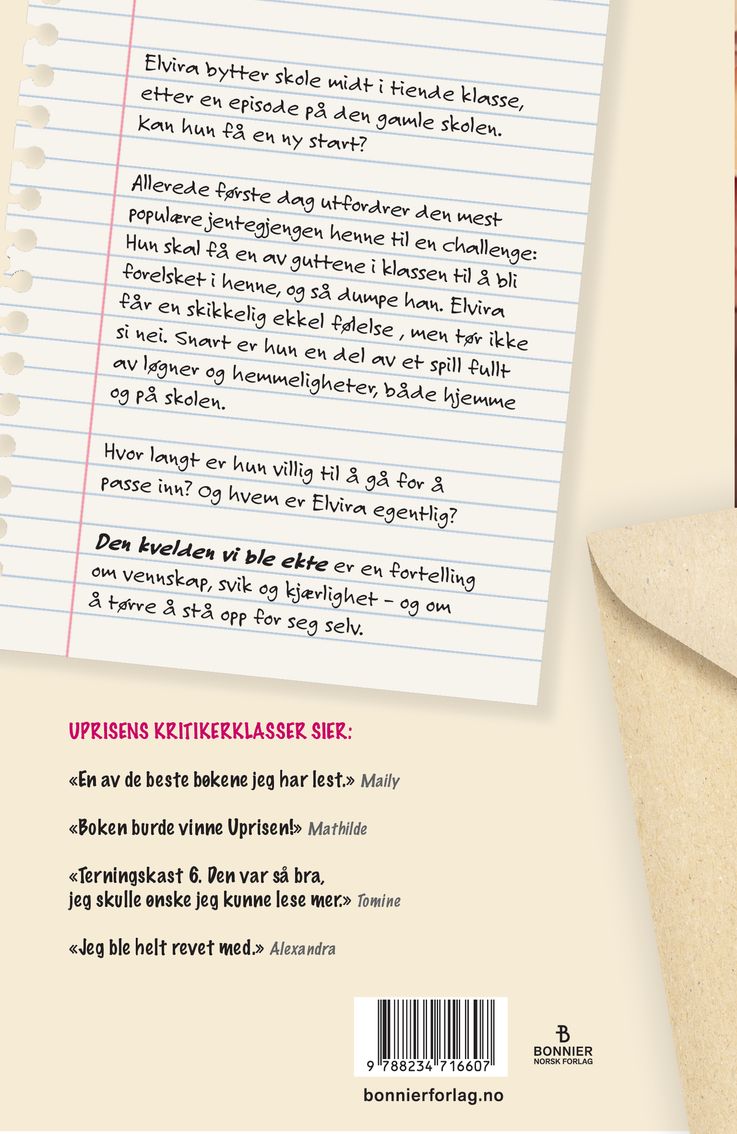 Elvira bytter skole midt i tiende klasse,
etter en episode på den gamle skolen.
Kan hun få en ny start?
Allerede første dag utfordrer den mest
populære jentegjengen henne til en challenge:
Hun skal få en av guttene i klassen til å bli
forelsket i henne, og så dumpe han. Elvira
får en skikkelig ekkel følelse , men tør ikke
si nei. Snart er hun en del av et spill fullt
av løgner og hemmeligheter, både hjemme
og på skolen.
Hvor langt er hun villig til å gå for å
passe inn? Og hvem er Elvira egentlig?
Den kvelden vi ble ekte er en fortelling
om vennskap, svik og kjærlighet – og om
å tørre å stå opp for seg selv.
UPRISENS KRITIKERKLASSER SIER:
«En av de beste bøkene jeg har lest.» Maily
«Boken burde vinne Uprisen!» Mathilde
«Terningskast 6. Den var så bra,
jeg skulle ønske jeg kunne lese mer.» Tomine
«Jeg ble helt revet med.» Alexandra
9 788234 716607
B
BONNIER
NORSK FORLAG
bonnierforlag.no